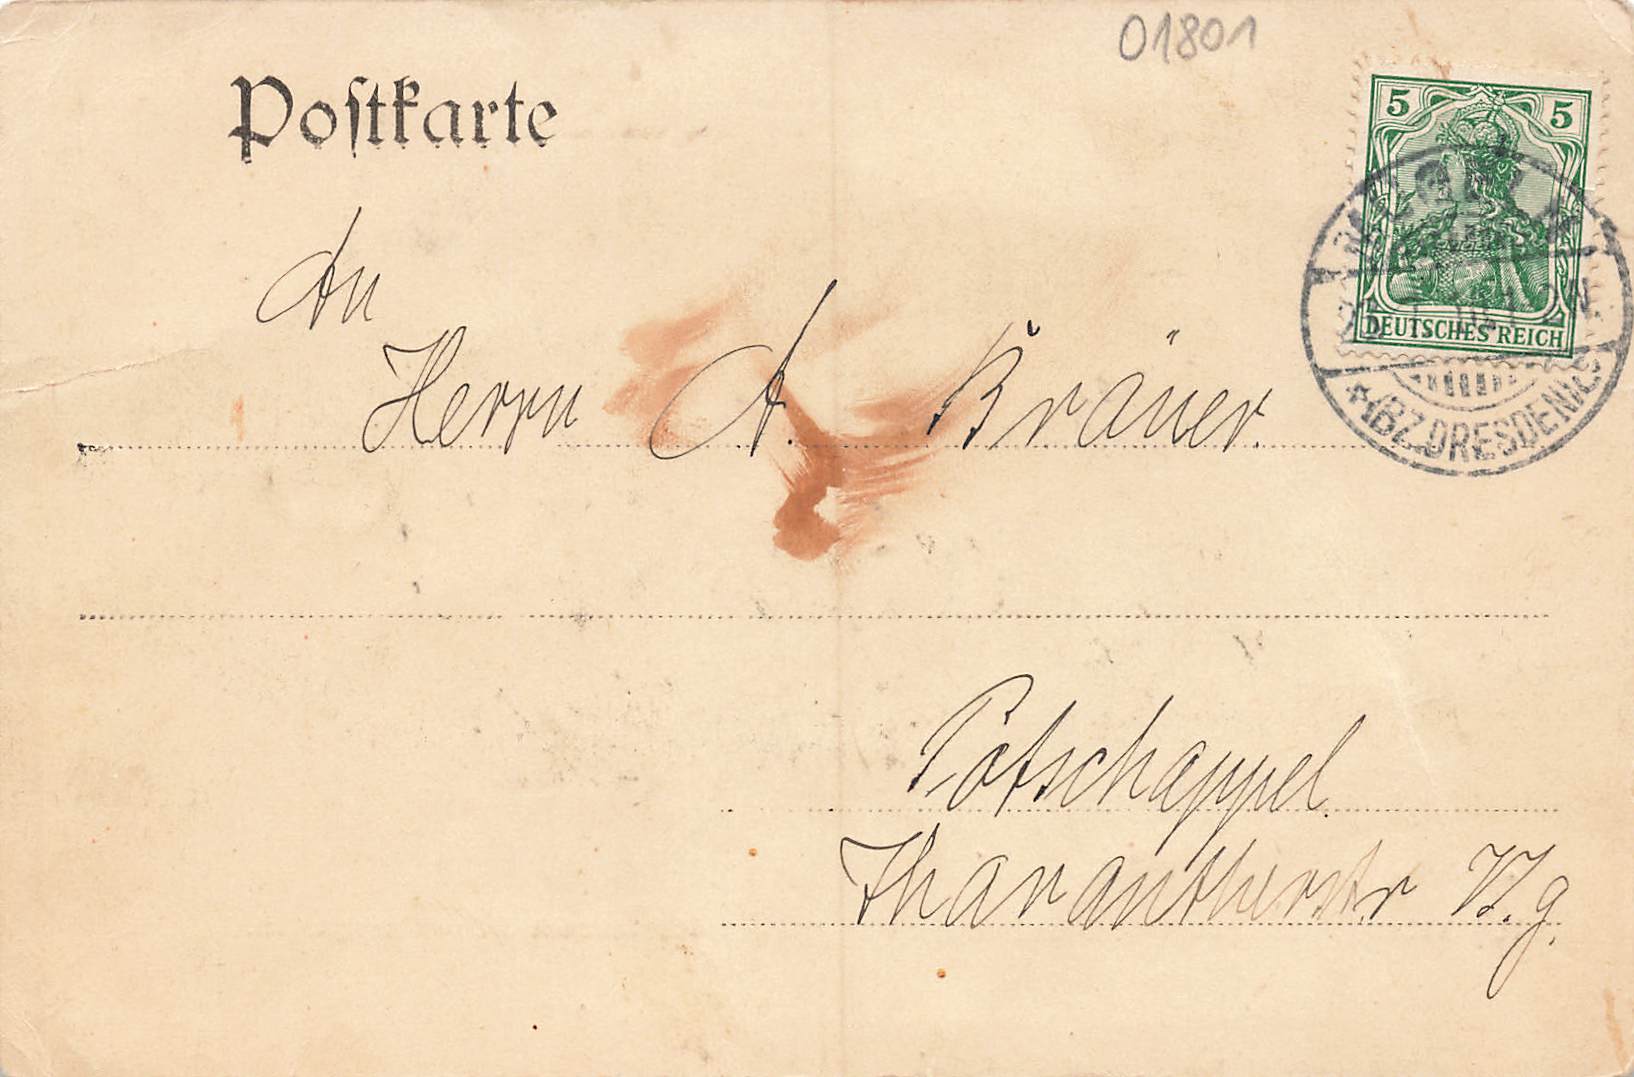 01801
Postkarte
5 5
DEUTSCHES REICH
*(BZ. DRESDEN)
An
Herrn A. Bräuer.
Potschappel.
Tharantherstr N. 9.